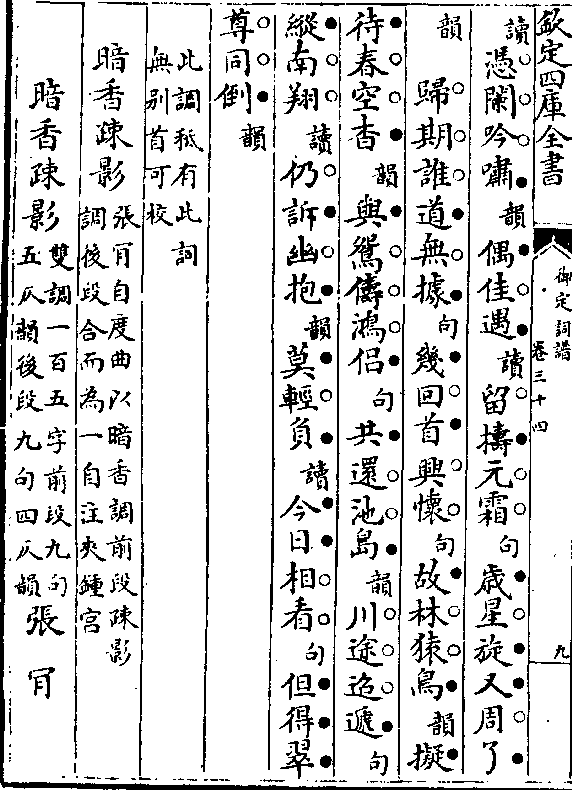 欽定四庫全書
御定詞譜
卷三十四
九
讀憑闌吟嘯韻偶佳遇讀留擣元霜句歲星旋又周了
韻
歸期誰道無據句幾回首興懷句故林猿鳥韻擬
待春空杳韻與鴛儔鴻侶句共還池島韻川途迢遞句
縱南翔讀仍訴幽抱韻莫輕負讀今日相看句但得翠
尊同倒韻
此調祗有此詞
無别首可校
暗香疎影張肎自度曲以暗香調前段疎影
調後段合而為一自注夾鍾宮
暗香疎影雙調一百五字前段九句
五仄韻後段九句四仄韻張肎